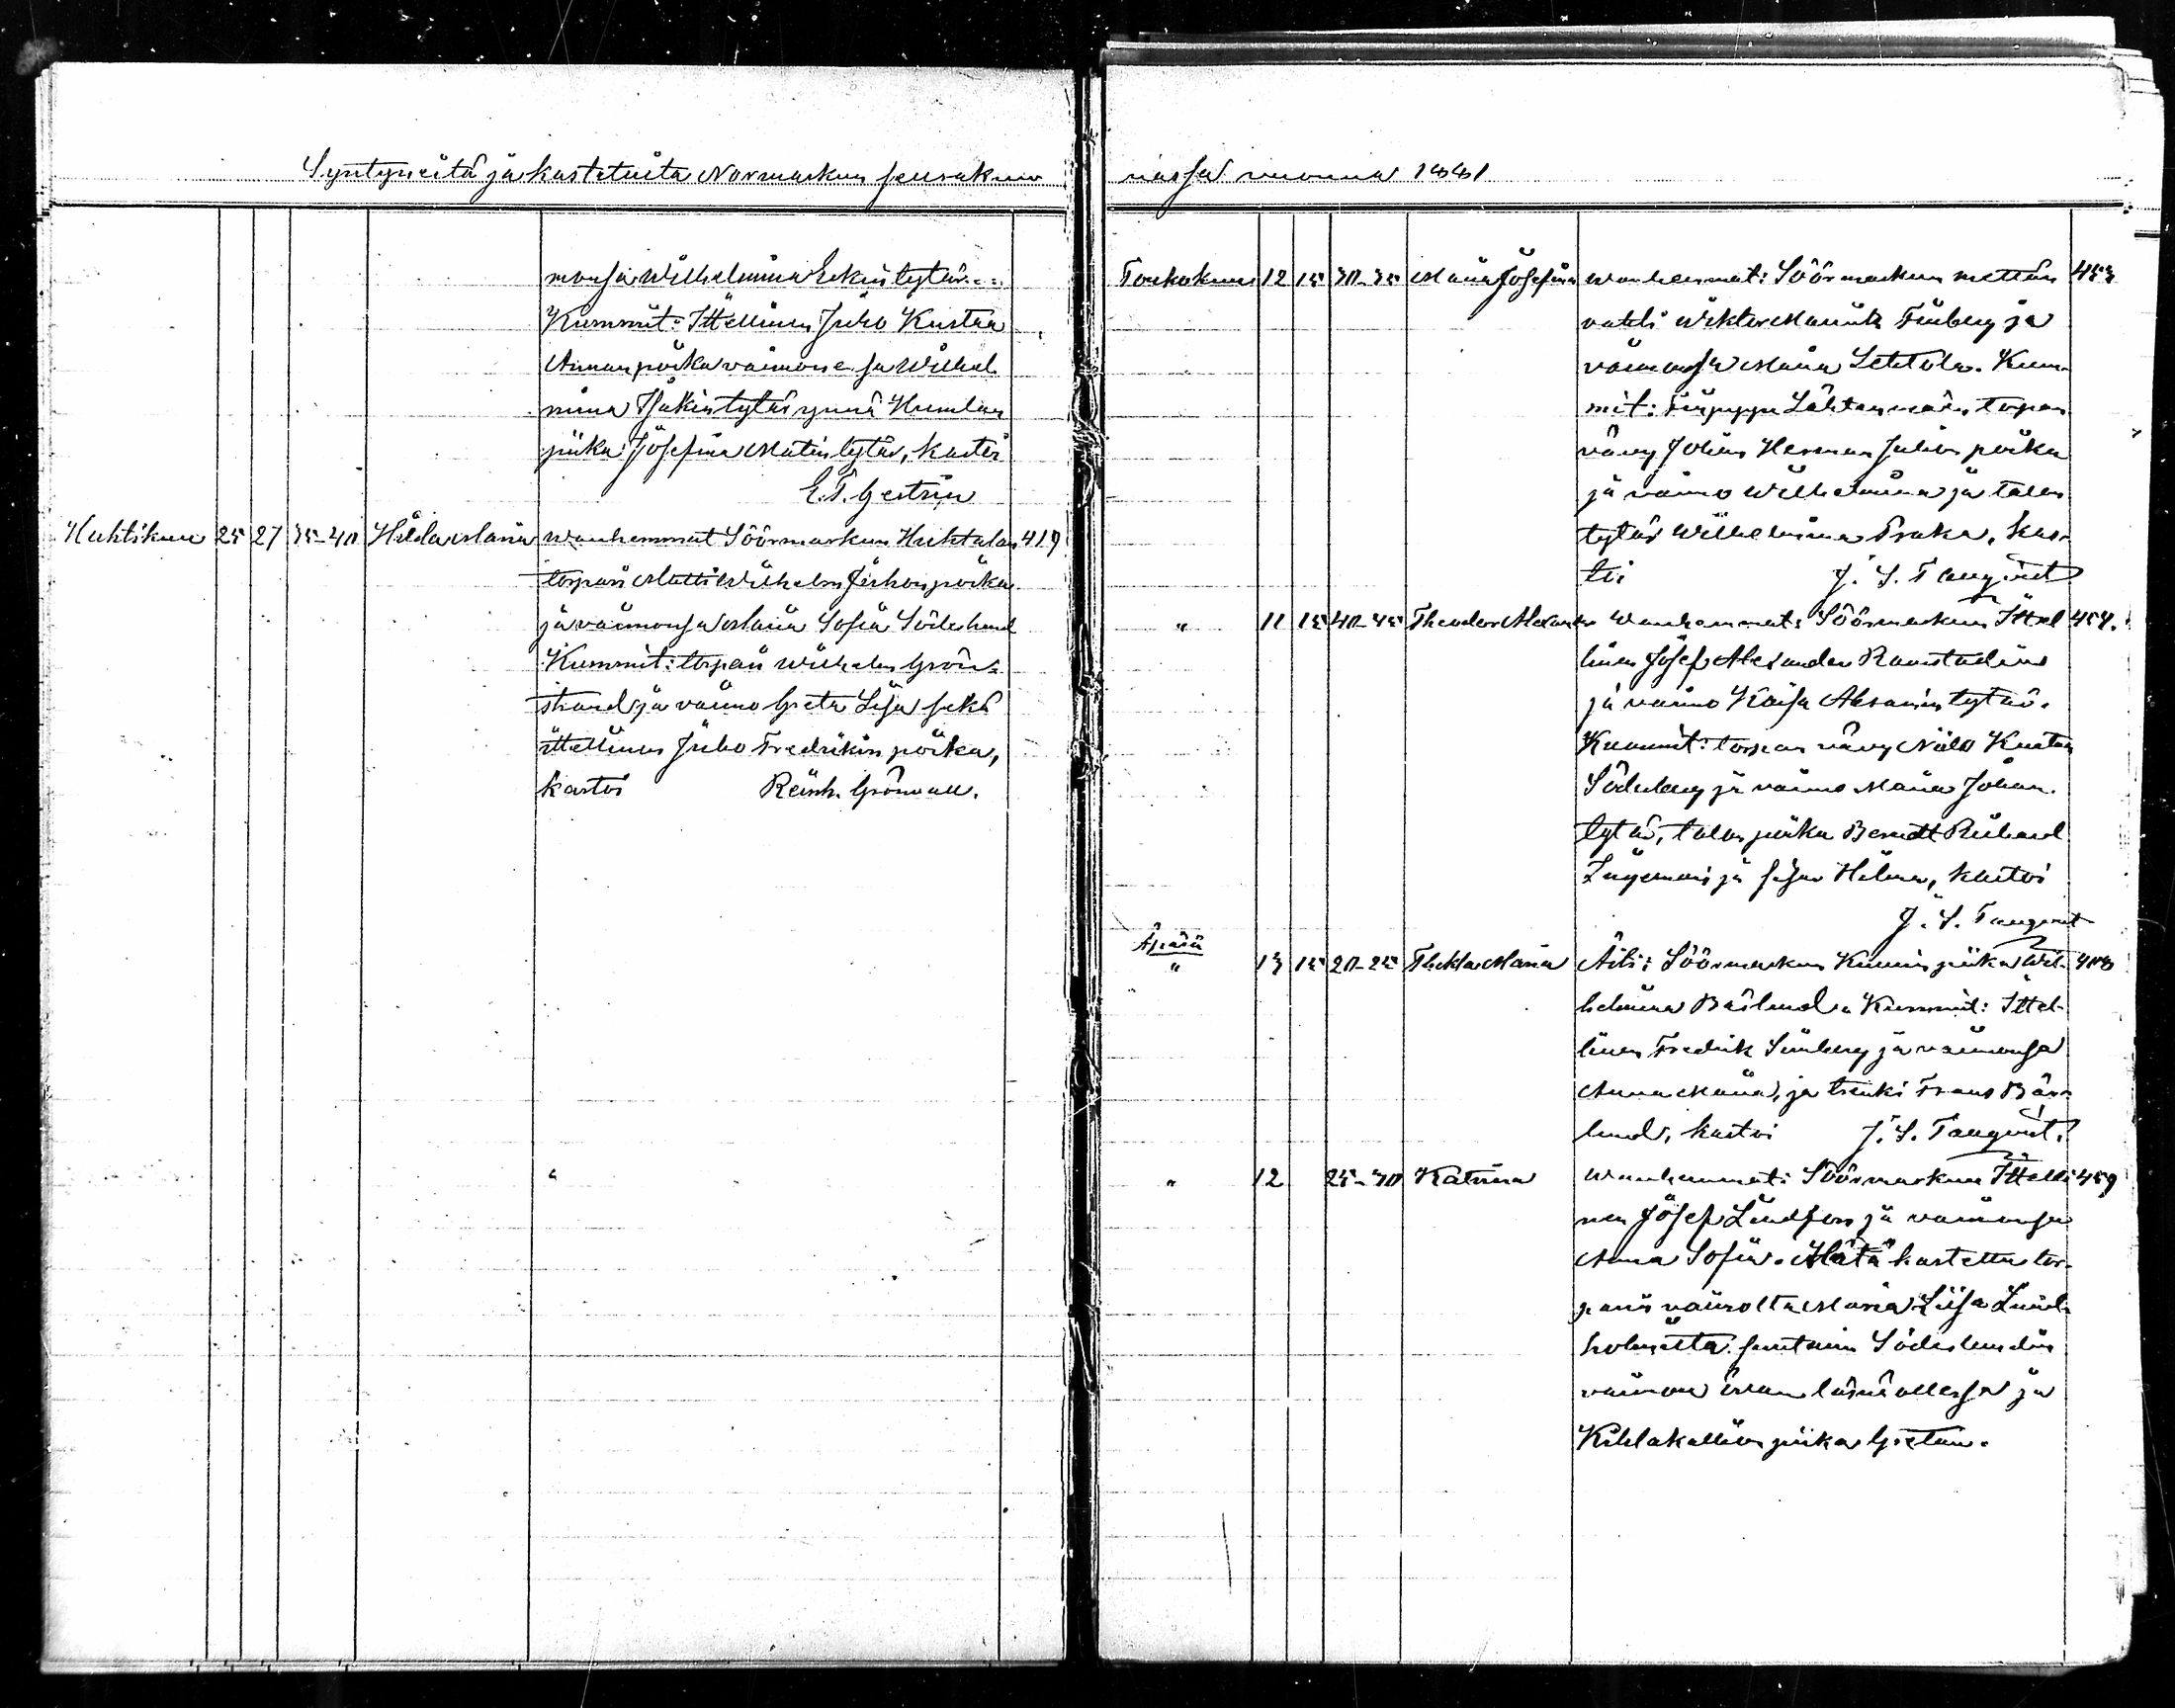 Syntyneitä ja kastetuita Normarkun seurakun
monsa Wilhelmina Erkin tytär.
Kummit: Ittellinen Juho Kustaa
Annan poika vaimonensa Wilhel
mina Isakin tytär ynnä Humlan
piika Josefina Matin tytär, kasti
E. T. Gestrin
Huhtikuu 25 27 35-40 Hilda Maria Wanhemmat Söörmarkun Huhtalan 419
torpari Matti Wilhelm Juhon poika
ja vaimonsa Maria Sofia Söderlund
Kummit: torpari Wilhelm Grön-
strand ja vaimo Greta Lisa sekä
ittellinen Juho Fredrikin poika,
kastoi Reinh. Grönvall.
nassa vuonna 1881
Toukokuu 12 15 30-35 Maria Josefina Wanhemmat: Söörmarkun mettän 453
vahti Wiktor Maurits Finberg ja
vaimonsa Maria Lehtola. Kum-
mit: torpan
vävy Johan Herman Juhon poika
ja vaimo Wilhelmina ja talon
tytär Wilhelmina Praka, kas-
toi J. S. Tanqvist
" 11 15 40-45 Theodor Alexander Wanhemmat: Söörmarkun Ittel 454.
linen Josef Alexander Ramstadius
ja vaimo Kaisa Aksamin tytär.
Kummit: torpan vävy Niilo Kustaa
Söderberg ja vaimo Maria Johan.
tytär, talon poika Berndt Rikhard
Ingemari ja sisar Hilma, kastoi
J. S. Tanqvist
Äpärä
" 13 15 20-25 Thekla Maria Äiti: Söörmarkun Kunnin piika Wil- 458
helmina Bärlund. Kummit: Ittel-
linen Fredrik Simberg ja vaimonsa
Anna Maria, ja trenki Frans Bär-
lund, kastoi J. S. Tanqvist.
" 12 25-30 Katrina Wanhemmat: Söörmarkun Ittelli 459
nen Josef Lindfors ja vaimonsa
Anna Sofia. Hätä kastettu tor-
parin vaimolta Maria Liisa Lind-
holmilta suntian Söderlundin
vaimon Ewan läsnä ollessa ja
Kihlakallion piika Gretan.